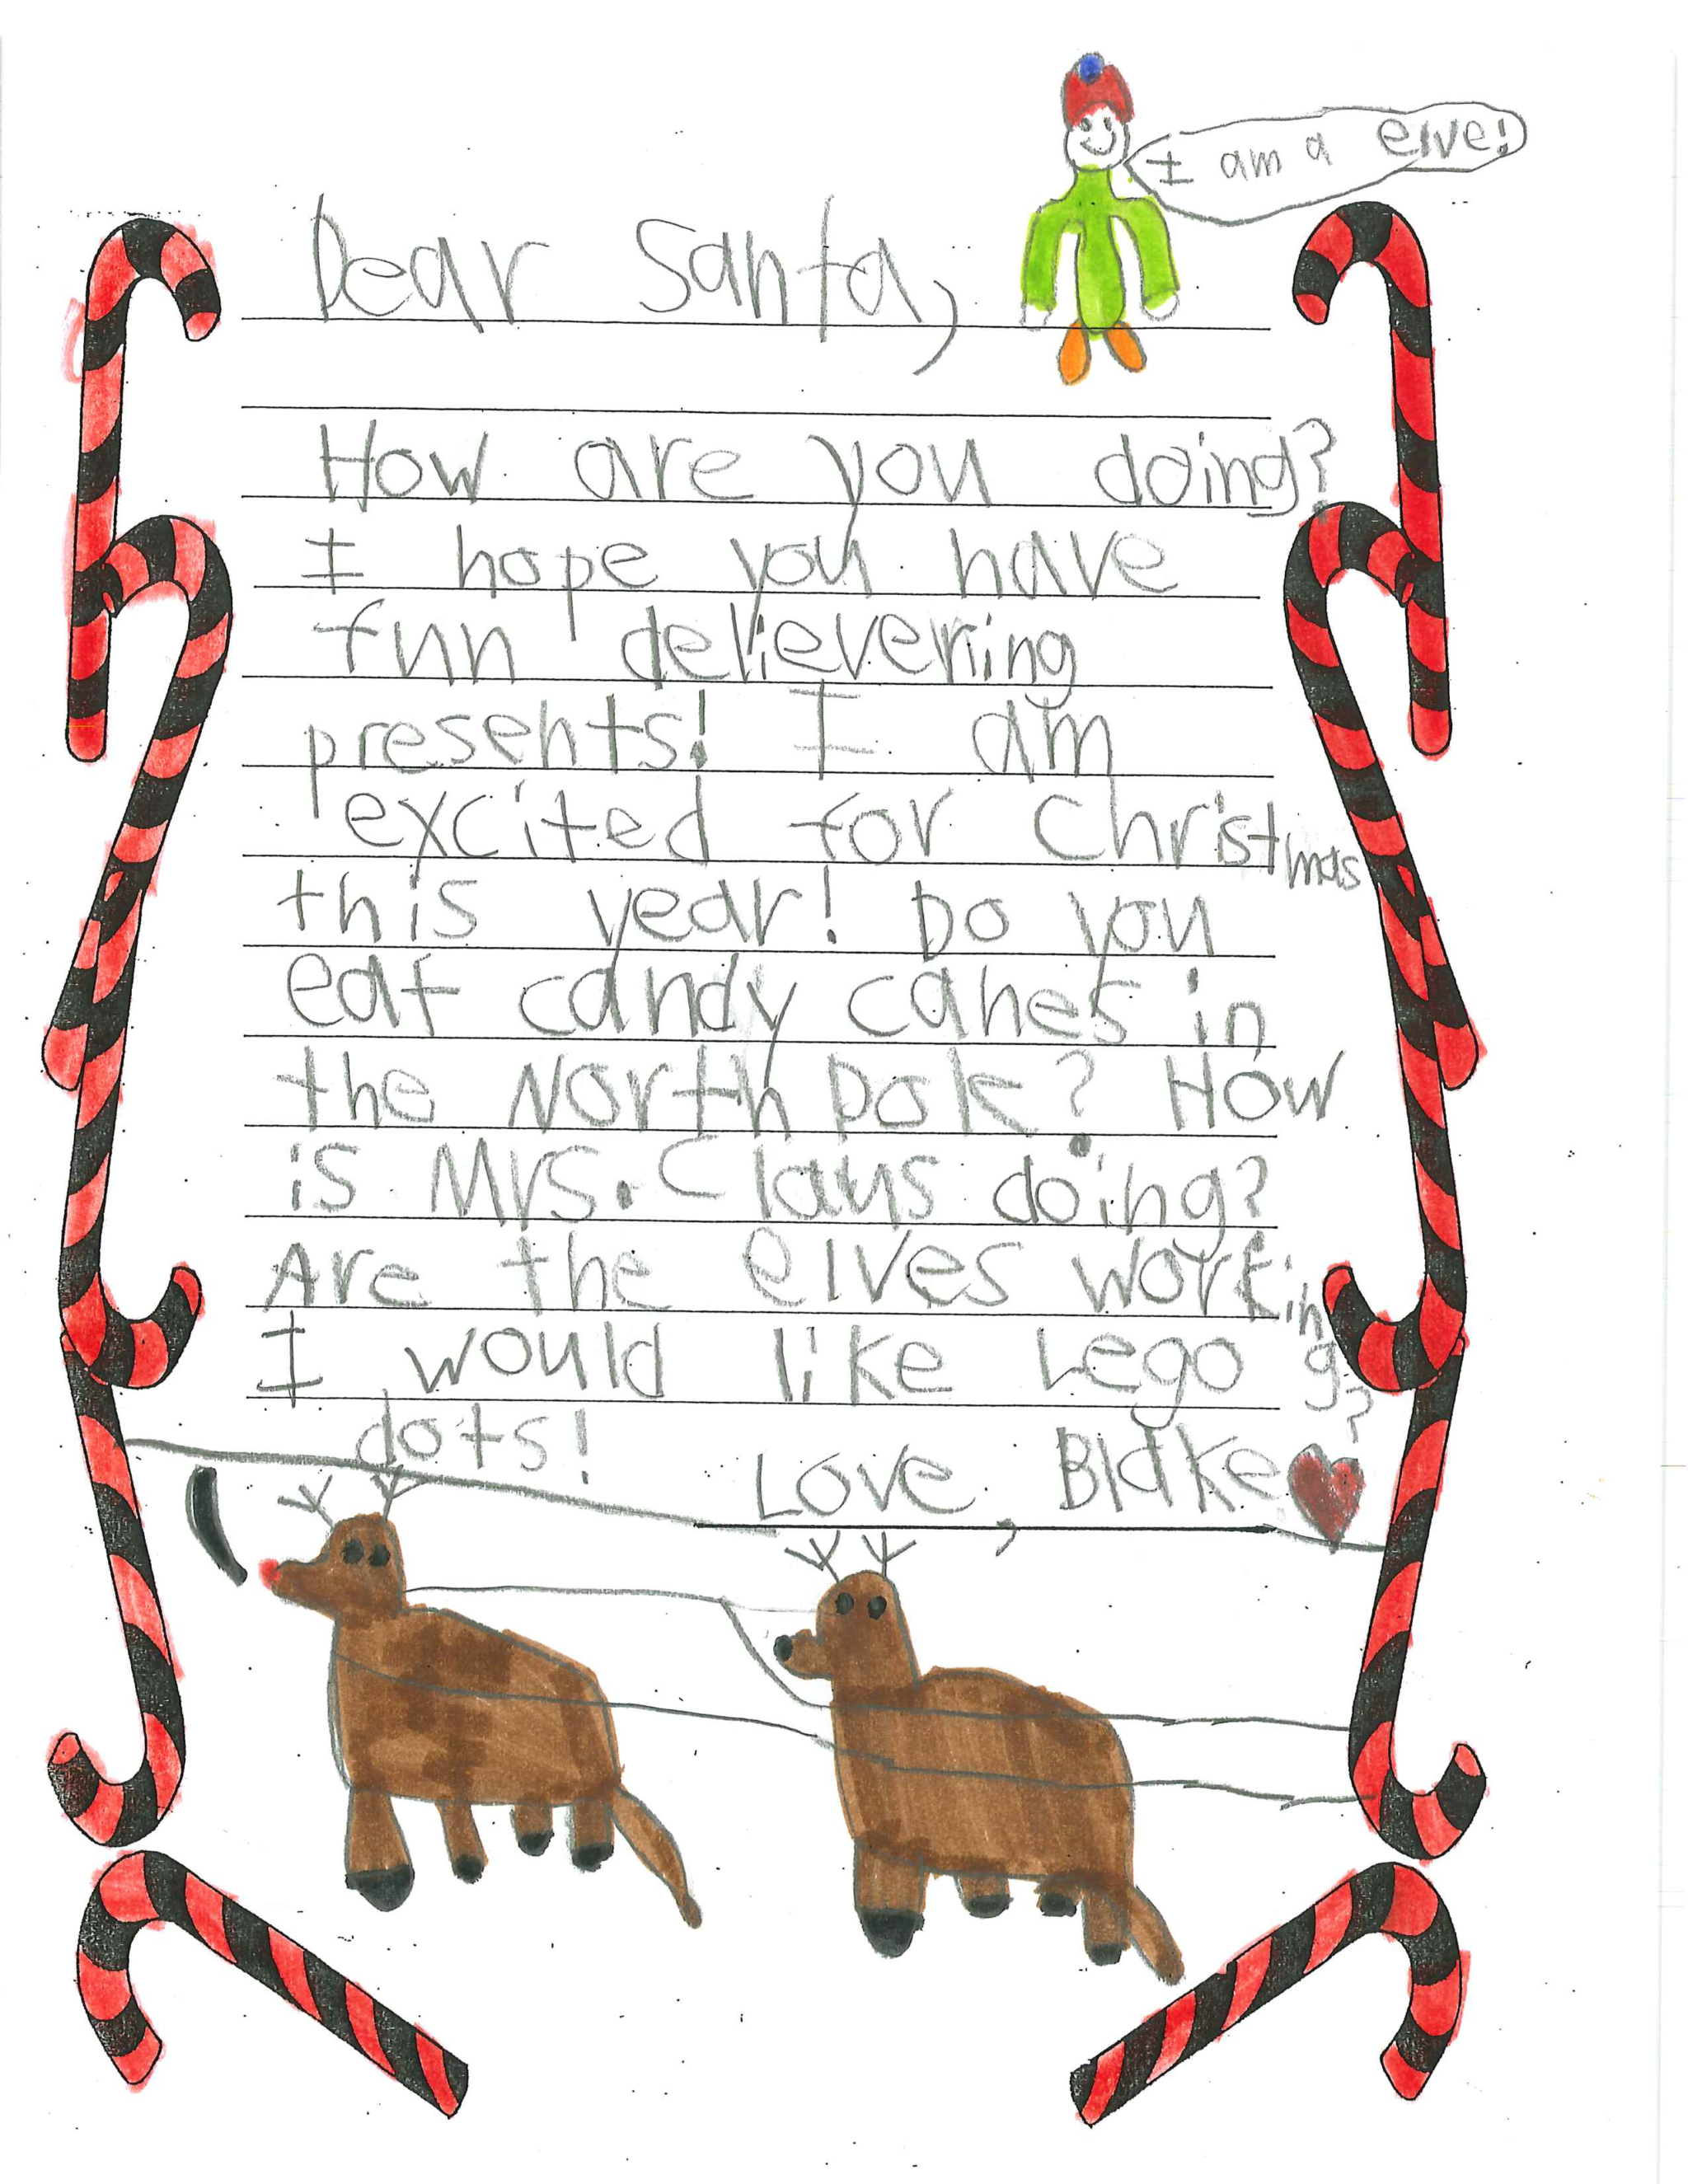 I am a elve!
Dear Santa,
How are you doing?
I hope you have
fun delievering
presents! I am
excited for Christmas
this year! Do you
eat candy canes in
the North Pole? How
is Mrs. Claus doing?
Are the elves working?
I would like Lego
dots!
Love, Blake